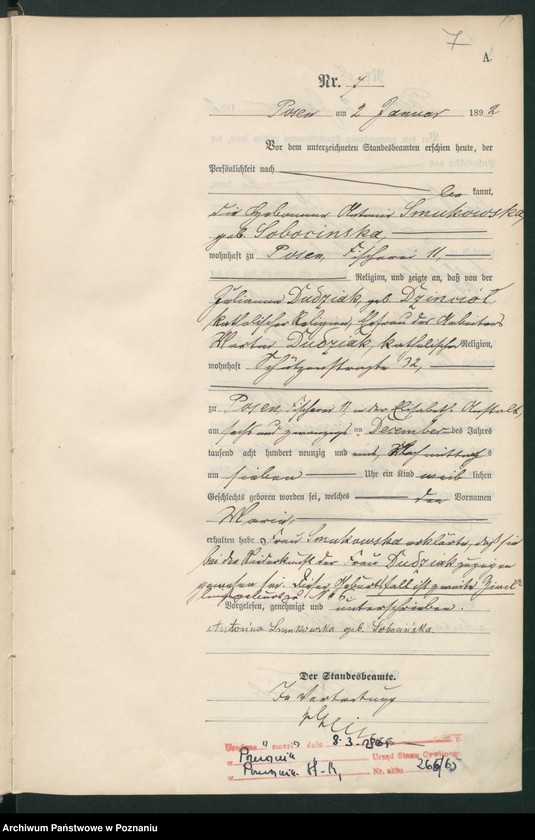 7
A.
Nr. 7
Posen am 2 Januar 1892
Vor dem unterzeichneten Standesbeamten erschien heute, der
Persönlichkeit nach
be kannt,
die Hebamme Antonie Smukowska
geb. Sobocinska,
wohnhaft zu Posen, Fischerei 11,
Religion, und zeigte an, daß von der
Julianna Dudziak, geb. Dzinciół,
katholischer Religion, Ehefrau des Arbeiters
Martin Dudziak, katholischer Religion,
wohnhaft Schützenstraße 32,
zu Posen, Fischerei 11 in der Elisabeth Anstalt,
am sechs und zwanzigsten December des Jahres
tausend acht hundert neunzig und eins, Nachmittags
um sieben Uhr ein Kind weib lichen
Geschlechts geboren worden sei, welches den Vornamen
Maria,
erhalten habe. Frau Smukowska erklärte, daß sie
bei der Niederkunft der Frau Dudziak zugegen
gewesen sei. Dieser Geburtsfall ist zweite Zwil-
lingsgeburt zu No 6.
Vorgelesen, genehmigt und unterschrieben.
Antonina Smukowska geb. Sobocińska.
Der Standesbeamte.
In Vertretung
dnia 8.3.
w Poznaniu Urząd Stanu Cywilnego
w Poznaniu Nr. aktu 266/65
Archiwum Państwowe w Poznaniu